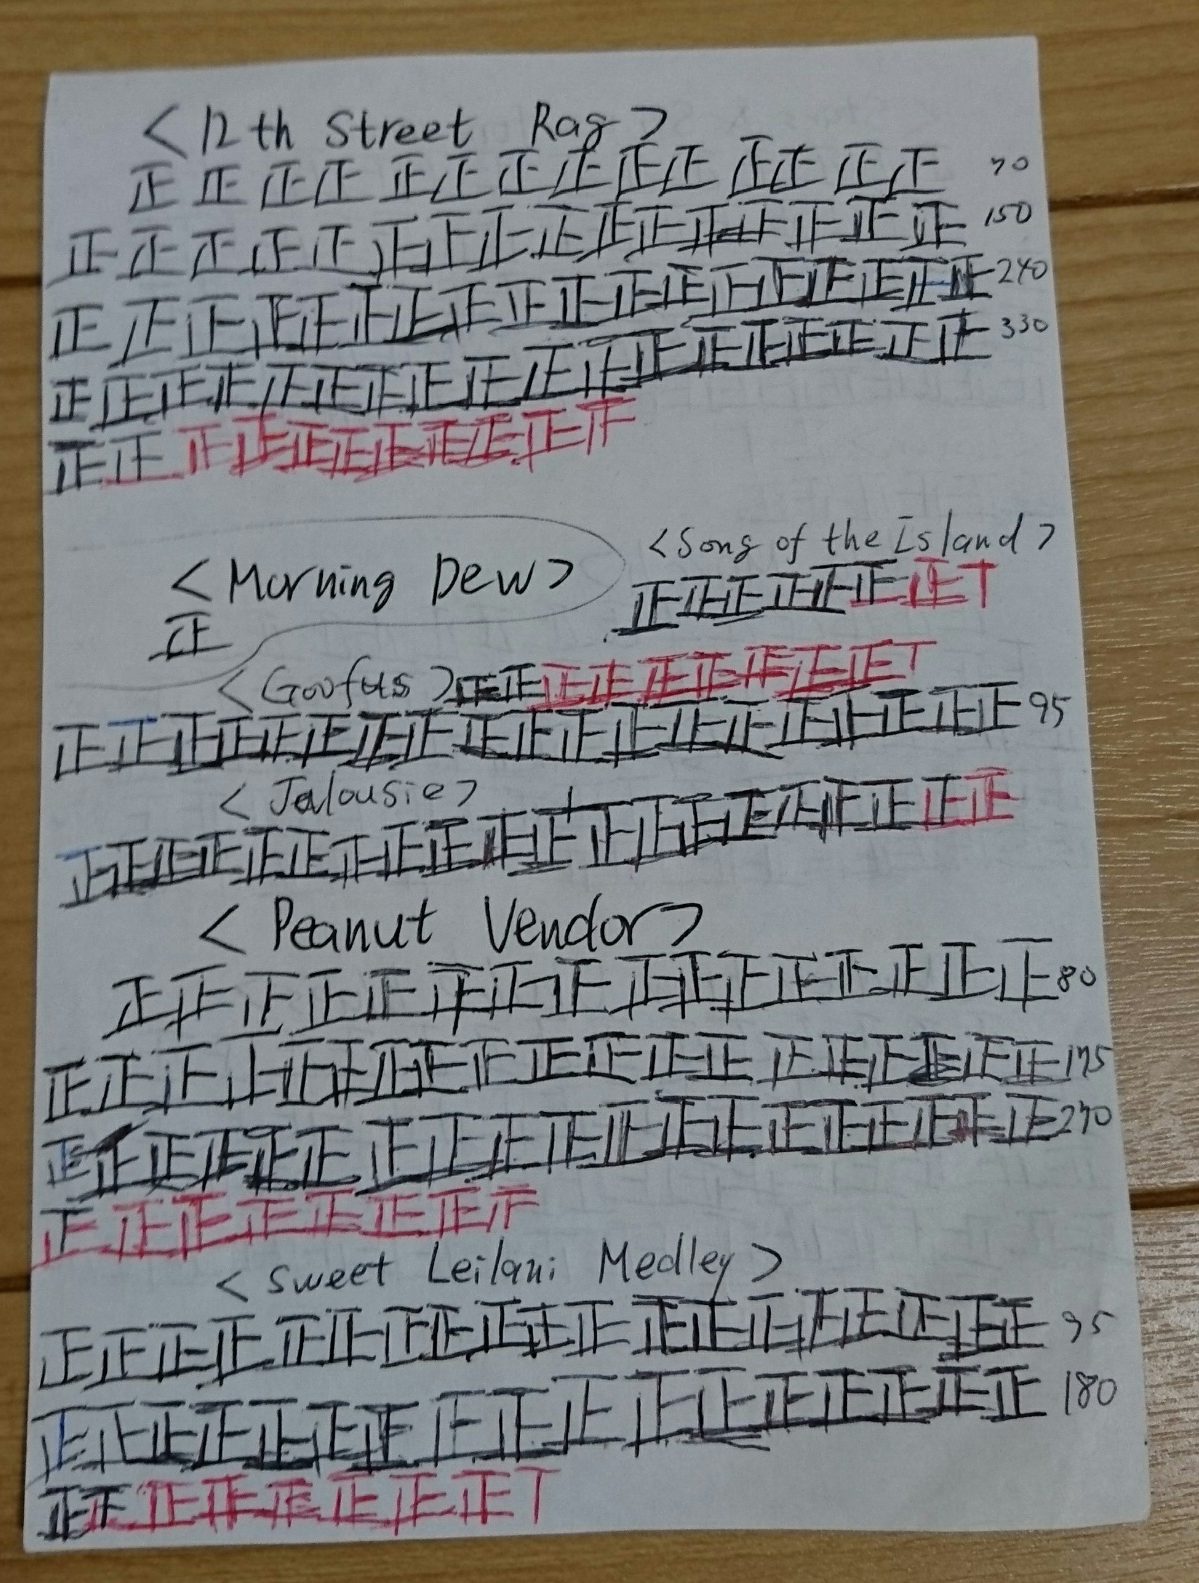 <12th Street Rag>
正正正正正正正正正正正正正正 70
正正正正正正正正正正正正正正正正 150
正正正正正正正正正正正正正正正正正正 240
正正正正正正正正正正正正正正正正正正 330
正正正正正正正正正正
<Morning Dew>
正
<Song of the Island>
正正正正正正正T
<Goofus> 正正正正正正正正正T
正正正正正正正正正正正正正正正正正正正 95
<Jealousie>
正正正正正正正正正正正正正正正正正正正正
<Peanut Vendor>
正正正正正正正正正正正正正正正正 80
正正正正正正正正正正正正正正正正正正正 175
正正正正正正正正正正正正正正正正正正正 270
正正正正正正正
<Sweet Leilani Medley>
正正正正正正正正正正正正正正正正正正正 95
正正正正正正正正正正正正正正正正正 180
正正正正正正正正T